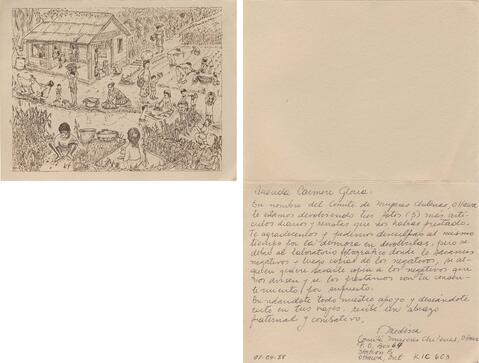 Querida Carmen Gloria:
En nombre del Comité de Mujeres Chilenas, Ottawa
te estamos devolviendo tres fotos (3) más artí-
culos diarios y revistas que nos habías prestado.
Te agradecemos y pedimos disculpas al mismo
tiempo por la demora en devolverlas, pero se
debió al laboratorio fotográfico donde le sacamos
negativos y luego copias de los negativos, si al-
guien quiere sacarle copia a los negativos que
nos avisen y se los prestamos con tu consen-
timiento por supuesto.
Brindandote todo nuestro apoyo y deseándote
éxito en tus viajes, recibe un abrazo
fraternal y combativo,
Comité Mujeres Chilenas, Ottawa
P.O. Box 64
Station B
Ottawa, Ont K1C 6C3
07.04.88